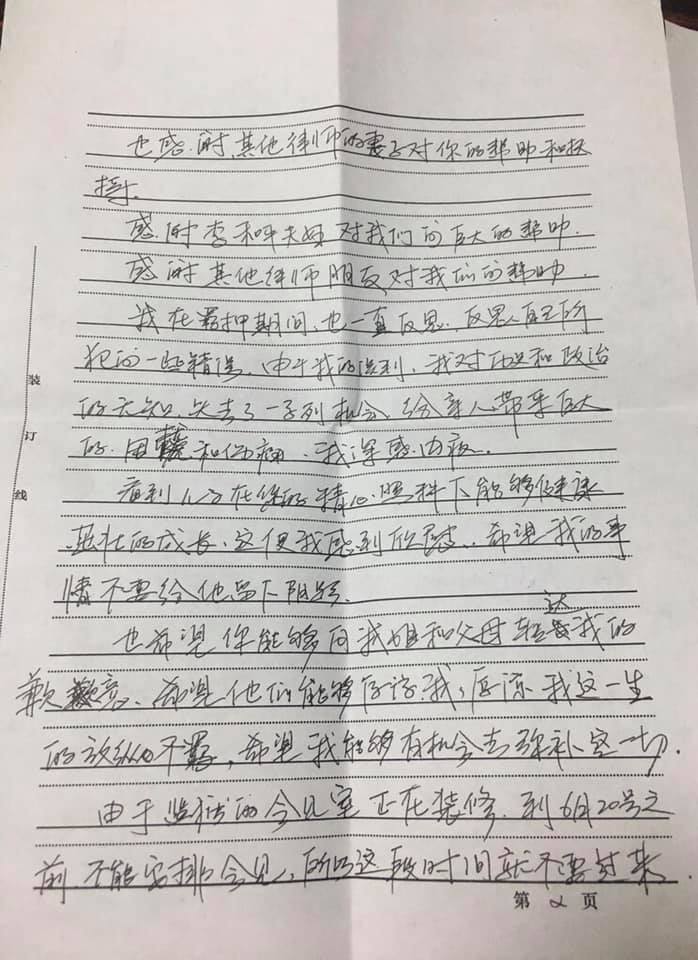 也感谢其他律师的妻子对你的帮助和扶
持。
感谢李和平夫妇对我们的巨大的帮助.
感谢其他律师朋友对我们的帮助.
我在羁押期间,也一直反思,反思自己所
犯的一些错误,由于我的,我对历史和政治
的无知,失去了一系列机会,给亲人带来巨大
的困扰和伤痛、我深感内疚.
看到儿子在你的精心照料下能够健康
茁壮的成长、这使我感到欣慰、希望我的事
情不要给他留下阴影.
也希望你能够向我姐和父母转达我的
歉意、希望他们能够原谅我,原谅我这一生
的放纵不羁,希望我能够有机会去弥补这一切.
由于监狱的会见室正在装修,到6月20号之
前,不能安排会见,所以这段时间就不要过来
装
订
线
第 2 页